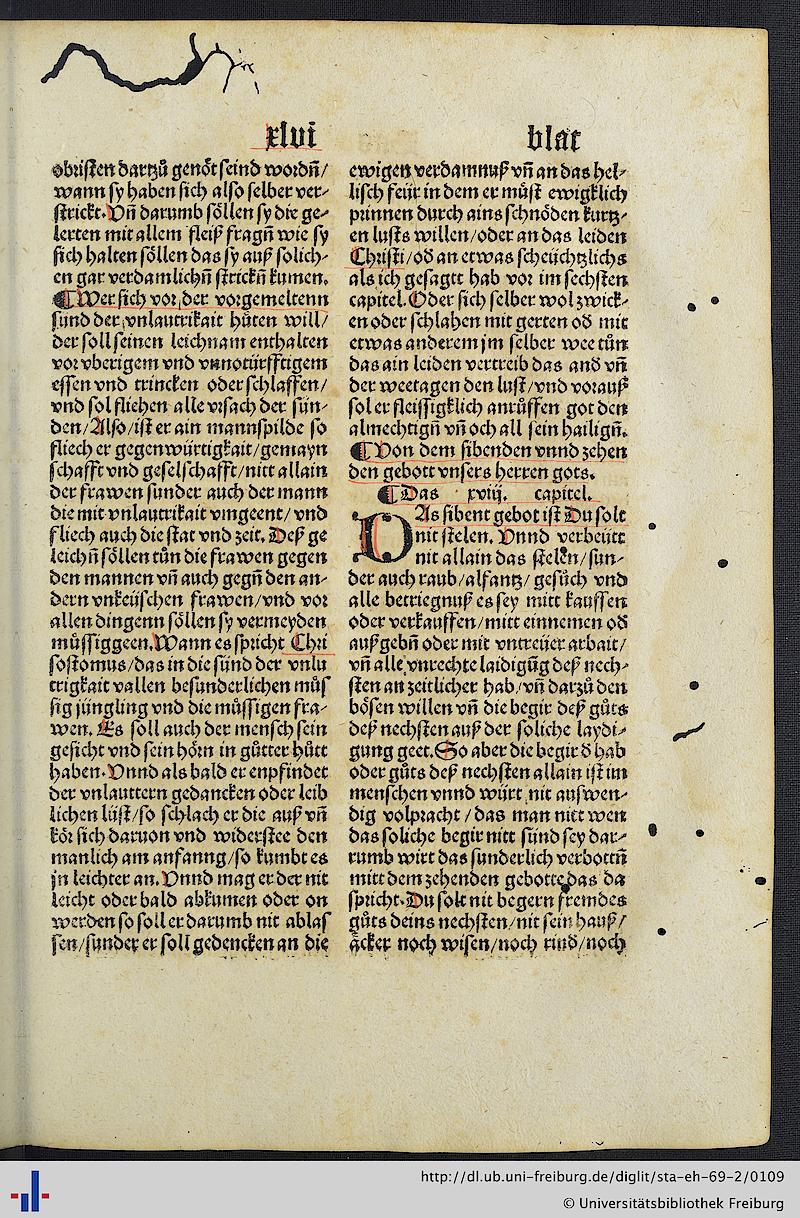 xlvi blat
obristen dartzů genöt seind wordn̄/
wann sy haben sich also selber ver-
strickt. Vn̄ darumb söllen sy die ge-
lerten mit allem fleiß fragn̄ wie sy
sich halten söllen das sy auß solich-
en gar verdamlichn̄ strickn̄ kumen.
¶ Wer sich vor der vorgemeltenn
sund der vnlautrikait hüten will/
der soll seinen leichnam enthalten
vor vberigem vnd vnnotürfftigem
essen vnd trincken oder schlaffen/
vnd sol fliehen alle vrsach der sün-
den/Also/ist er ain mannspilde so
fliech er gegenwürtigkait/gemayn
schafft vnd geselschafft/nitt allain
der frawen sunder auch der mann
die mit vnlautrikait vmgeent/vnd
fliech auch die stat vnd zeit. Deß ge
leichn̄ söllen tůn die frawen gegen
den mannen vn̄ auch gegn̄ den an-
dern vnkeüschen frawen/vnd vor
allen dingenn söllen sy vermeyden
müssiggeen. Wann es spricht Chri
sostomus/das in die sünd der vnlu
trigkait vallen besunderlichen müs
sig jüngling vnd die müssigen fra-
wen. Es soll auch der mensch sein
gesicht vnd sein hörn in gütter hůtt
haben. Vnnd als bald er enpfindet
der vnlauttern gedancken oder leib
lichen lüst/so schlach er die auß vn̄
kör sich daruon vnd widerstee den
manlich am anfanng/so kumbt es
jn leichter an. Vnnd mag er der nit
leicht oder bald abkumen oder on
werden so soll er darumb nit ablas
sen/sunder er soll gedencken an die
ewigen verdamnuß vn̄ an das hel-
lisch feür in dem er můst ewigklich
prinnen durch ains schnöden kurtz-
en lusts willen/oder an das leiden
Christi/od an etwas scheüchtzlichs
als ich gesagtt hab vor im sechsten
capitel. Oder sich selber wol zwick-
en oder schlahen mit gerten od mit
etwas anderem jm selber wee tůn
das ain leiden vertreib das and vn̄
der weetagen den lust/vnd vorauß
sol er fleissigklich anrůffen got den
almechtign̄ vn̄ och all sein hailign̄.
¶ Von dem sibenden vnnd zehen
den gebott vnsers herren gots.
¶ Das xviij. capitel.
DAs sibent gebot ist Du solt
nit stelen. Vnnd verbeütt
nit allain das stelen/sun-
der auch raub/alfantz/gesůch vnd
alle betriegnuß es sey mitt kauffen
oder verkauffen/mitt einnemen od
außgebn̄ oder mit vntreüer arbait/
vn̄ alle vnrechte laidigūg deß nech-
sten an zeitlicher hab/vn̄ darzů den
bösen willen vn̄ die begir deß gůts
deß nechsten auß der soliche laydi-
gung geet. So aber die begir d hab
oder gůts deß nechsten allain ist im
menschen vnnd würt nit auswen-
dig volpracht/das man nitt wen
das soliche begir nitt sünd sey dar-
rumb wirt das sunderlich verbottn̄
mitt dem zehenden gebotte das da
spricht. Du solt nit begern fremdes
gůts deins nechsten/nit sein hauß/
äcker noch wisen/noch rind/noch
http://dl.ub.uni-freiburg.de/diglit/sta-eh-69-2/0109
© Universitätsbibliothek Freiburg